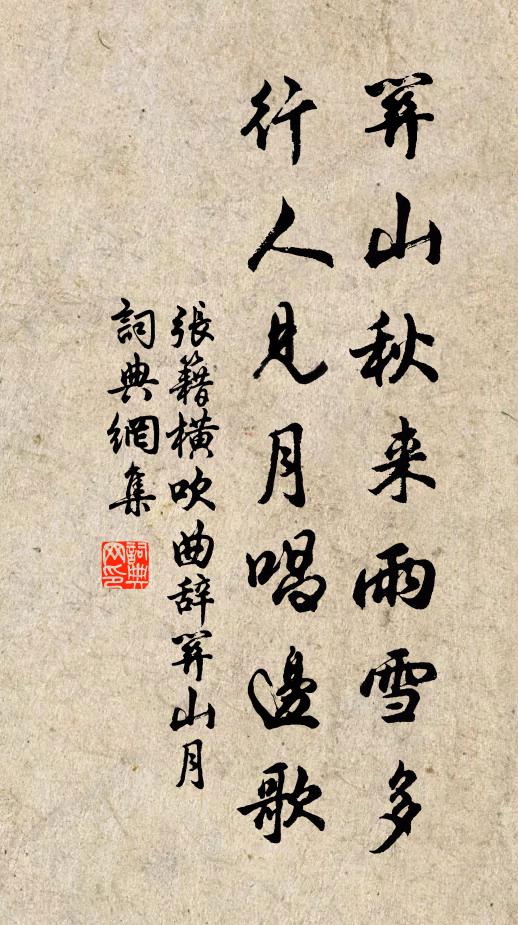 関山秋来雨雪多
行人見月唱邊歌
張籍橫吹曲辞関山月
詞典網集
詞典
网印